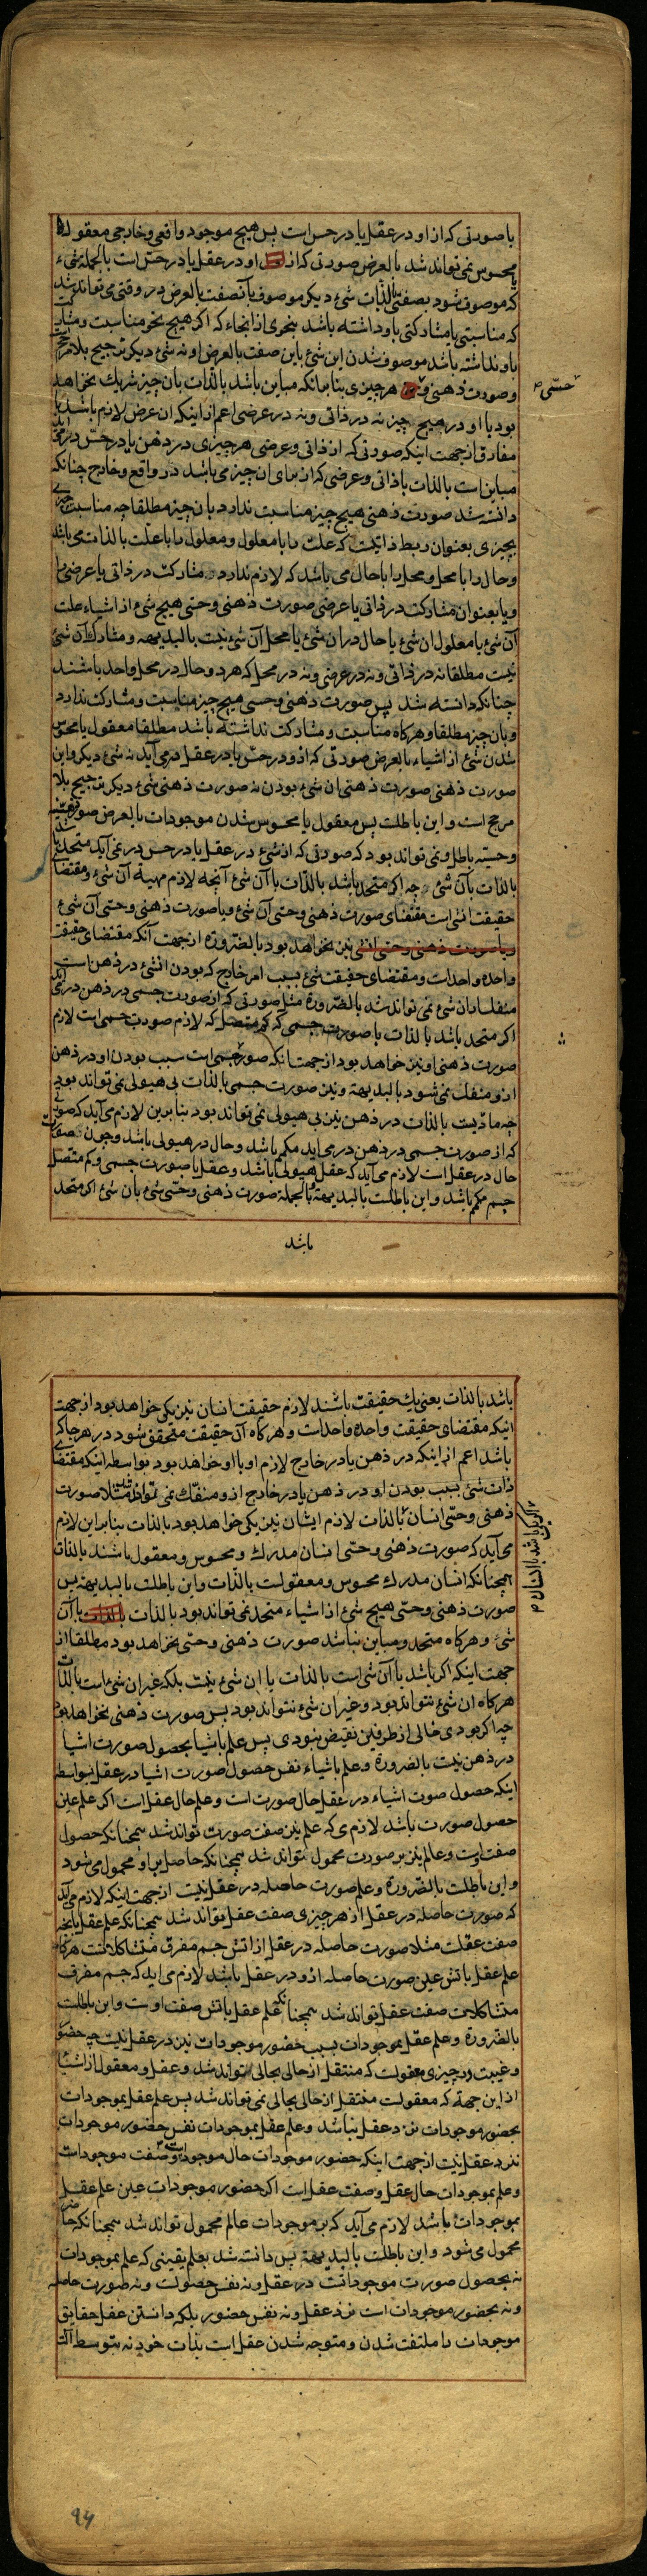 باصورتی که از او در عقل یا در حس است پس هیچ موجود واقعی و خارجی معقول یا
محسوس نمی تواند شد بالعرض صورتی که از او در عقل یا در حس است بالجمله شیء
که موصوف شود بصفتی بالذات شیء دیگر موصوف بآنصفت بالعرض در وقتی می تواند شد
که مناسبتی یا مشارکتی باو داشته باشد بنحوی از انحاء که اگر هیچ نحو مناسبت و مشارکت
باو نداشته باشد موصوف شدن این شیء باین صفت بالعرض او نه شیء دیگر ترجیح بلامرجح
وصورت ذهنی و حسّی هر چیزی بنابر آنکه مباین باشد بالذات بان چیز شریک نخواهد
بود با او در هیچ چیز نه در ذاتی و نه در عرضی اعم از اینکه ان عرض لازم باشد یا
مفارق از جهت اینکه صورتی که از ذاتی و عرضی هر چیزی در ذهن یا در حس در می آید
مباین است بالذات با ذاتی و عرضی که از برای ان چیز می باشد در واقع و خارج چنانکه
دانسته شد صورت ذهنی هیچ چیز مناسبت ندارد بان چیز مطلقا چه مناسبت چیزی
بچیزی بعنوان ربط ذاتیست که علت را با معلول و معلول را با علت بالذات می باشد
وحال را با محل و محل را با حال می باشد که لازم ندارد مشارکت در ذاتی یا عرضی را
و یا بعنوان مشارکت در ذاتی یا عرضی صورت ذهنی و حسی هیچ شیء از اشیاء علت
آن شیء یا معلول ان شیء یا حال در ان شیء یا محل آن شیء نیست بالبدیهه و مشارک آن شیء
نیست مطلقا نه در ذاتی و نه در عرضی و نه در محل که هر دو حال در محل واحد باشند
چنانکه دانسته شد پس صورت ذهنی و حسی هیچ چیز مناسبت و مشارکت ندارد
و بان چیز مطلقا و هرگاه مناسبت و مشارکت نداشته باشد مطلقا معقول یا محسوس
شدن شیء از اشیاء بالعرض صورتی که از و در حس یا در عقل در می آید نه شیء دیگر و این
صورت ذهنی صورت ذهنی ان شیء بودن نه صورت ذهنی شیء دیگر ترجیح بلا
مرجح است و این باطلست پس معقول یا محسوس شدن موجودات بالعرض صور ذهنیه
وحسیه باطل و نمی تواند بود که صورتی که از شیء در عقل یا در حس در می آید متحد باشد
بالذات بآن شیء چه اگر متحد باشد بالذات با آن شیء آنچه لازم مهیة آن شیء و مقتضای
حقیقت انشیء است مقتضای صورت ذهنی و حسی آن شیء و با صورت ذهنی و حسی آن شیء
و با صورت ذهنی و حسی انشیء نیز نخواهد بود بالضرورة از جهت آنکه مقتضای حقیقت
واحده واحدست و مقتضای حقیقت شیء بسبب امر خارج که بودن انشیء در ذهن است
منفک از ان شیء نمی تواند شد بالضرورة مثل صورتی که از صورت جسمی در ذهن در می آید
اگر متحد باشد بالذات با صورت جسمی که کم متصل که لازم صورت جسمی است لازم
صورت ذهنی او نیز خواهد بود از جهت انکه صورت جسمی است سبب بودن او در ذهن
از و منفک نمی شود بالبدیهة و نیز صورت جسمی بالذات بی هیولی نمی تواند بود
چه مادیست بالذات در ذهن نیز بی هیولی نمی تواند بود بنابرین لازم می آید که صورتی
که از صورت جسمی در ذهن در می اید مکمم باشد و حال در هیولی باشد و چون صورت
حال در عقل است لازم می آید که عقل هیولی باشد و عقل با صورت جسمی و کم متصل
جسم مکمم باشد و این باطلست بالبدیهة و بالجملة صورت ذهنی و حسی شیء بان شیء اگر متحد
باشد
باشد بالذات یعنی یک حقیقت باشند لازم حقیقت انسان نیز یکی خواهد بود از جهت
اینکه مقتضای حقیقت واحده واحدست و هرگاه آن حقیقت متحقق شود در هر جا که
باشد اعم از اینکه در ذهن یا در خارج لازم او با او خواهد بود بواسطه اینکه مقتضای
ذات شیء بسبب بودن او در ذهن یا در خارج از و منفک نمی تواند شد مثلا صورت
ذهنی و حسی انسان بالذات لازم ایشان نیز یکی خواهد بود بالذات بنابر این لازم
می آید که صورت ذهنی و حسی انسان مدرک و محسوس و معقول باشند بالذات
همچنانکه انسان مدرک محسوس و معقولست بالذات و این باطلست بالبدیهة پس
صورت ذهنی و حسی هیچ شیء از اشیاء متحد نمی تواند بود بالذات بالذات با آن
شیء و هرگاه متحد و مباین نباشد صورت ذهنی و حسی نخواهد بود مطلقا از
جهت اینکه اگر باشد یا آن شیء است بالذات یا ان شیء نیست بلکه غیر ان شیء است بالذات
هرگاه ان شیء نتواند بود و غیر ان شیء نتواند بود پس صورت ذهنی نخواهد بود
چه اگر بودی خالی از طرفین نقیض نبودی پس علم باشیا بحصول صورت اشیا
در ذهن نیست بالضرورة و علم باشیاء نفس حصول صورت اشیا در عقل نیز بواسطه
اینکه حصول صورت اشیاء در عقل حال صورت است و علم حال عقل است اگر علم عین
حصول صورت باشد لازم می که علم نیز صفت صورت تواند شد همچنانکه حصول
صفت اوست و عالم نیز بر صورت محمول تواند شد همچنانکه حاصل بر او محمول می شود
و این باطلست بالضرورة و علم صورت حاصله در عقل نیست از جهت اینکه لازم می آید
که صورت حاصله در عقل از هر چیزی صفت عقل تواند شد همچنانکه علم عقل بانچیز
صفت عقلست مثلا صورت حاصله در عقل از آتش جسم مفرق متشاکلاتست هرگاه
علم عقل باتش عین صورت حاصله از و در عقل باشد لازم می اید که جسم مفرق
متشاکلات صفت عقل تواند شد همچنانکه علم عقل باتش صفت اوست و این باطلست
بالضرورة و علم عقل بموجودات بسبب حضور موجودات نیز در عقل نیست چه حضور
و غیبت در چیزی معقولست که منتقل از حالی بحالی تواند شد و عقل و معقول از اشیا
از این جهة که معقولست منتقل از حالی بحالی نمی تواند شد پس علم عقل بموجودات
بحضور موجودات نزد عقل نباشد و علم عقل بموجودات نفس حضور موجودات
نزد عقل نیست از جهت اینکه حضور موجودات حال موجودات است و صفت موجوداست
و علم بموجودات حال عقل و صفت عقل است اگر حضور موجودات عین علم عقل
بموجودات باشد لازم می آید که بر موجودات عالم محمول تواند شد همچنانکه حاضر
محمول می شود و این باطلست بالبدیهة پس دانسته شد بعلم یقینی که علم بموجودات
نه بحصول صورت موجوداتست در عقل و نه نفس حصولست و نه صورت حاصله
و نه بحضور موجودات است نزد عقل و نه نفس حضور بلکه دانستن عقل حقایق
موجودات را ملتفت شدن و متوجه شدن عقل است بذات خود نه بتوسط آلت